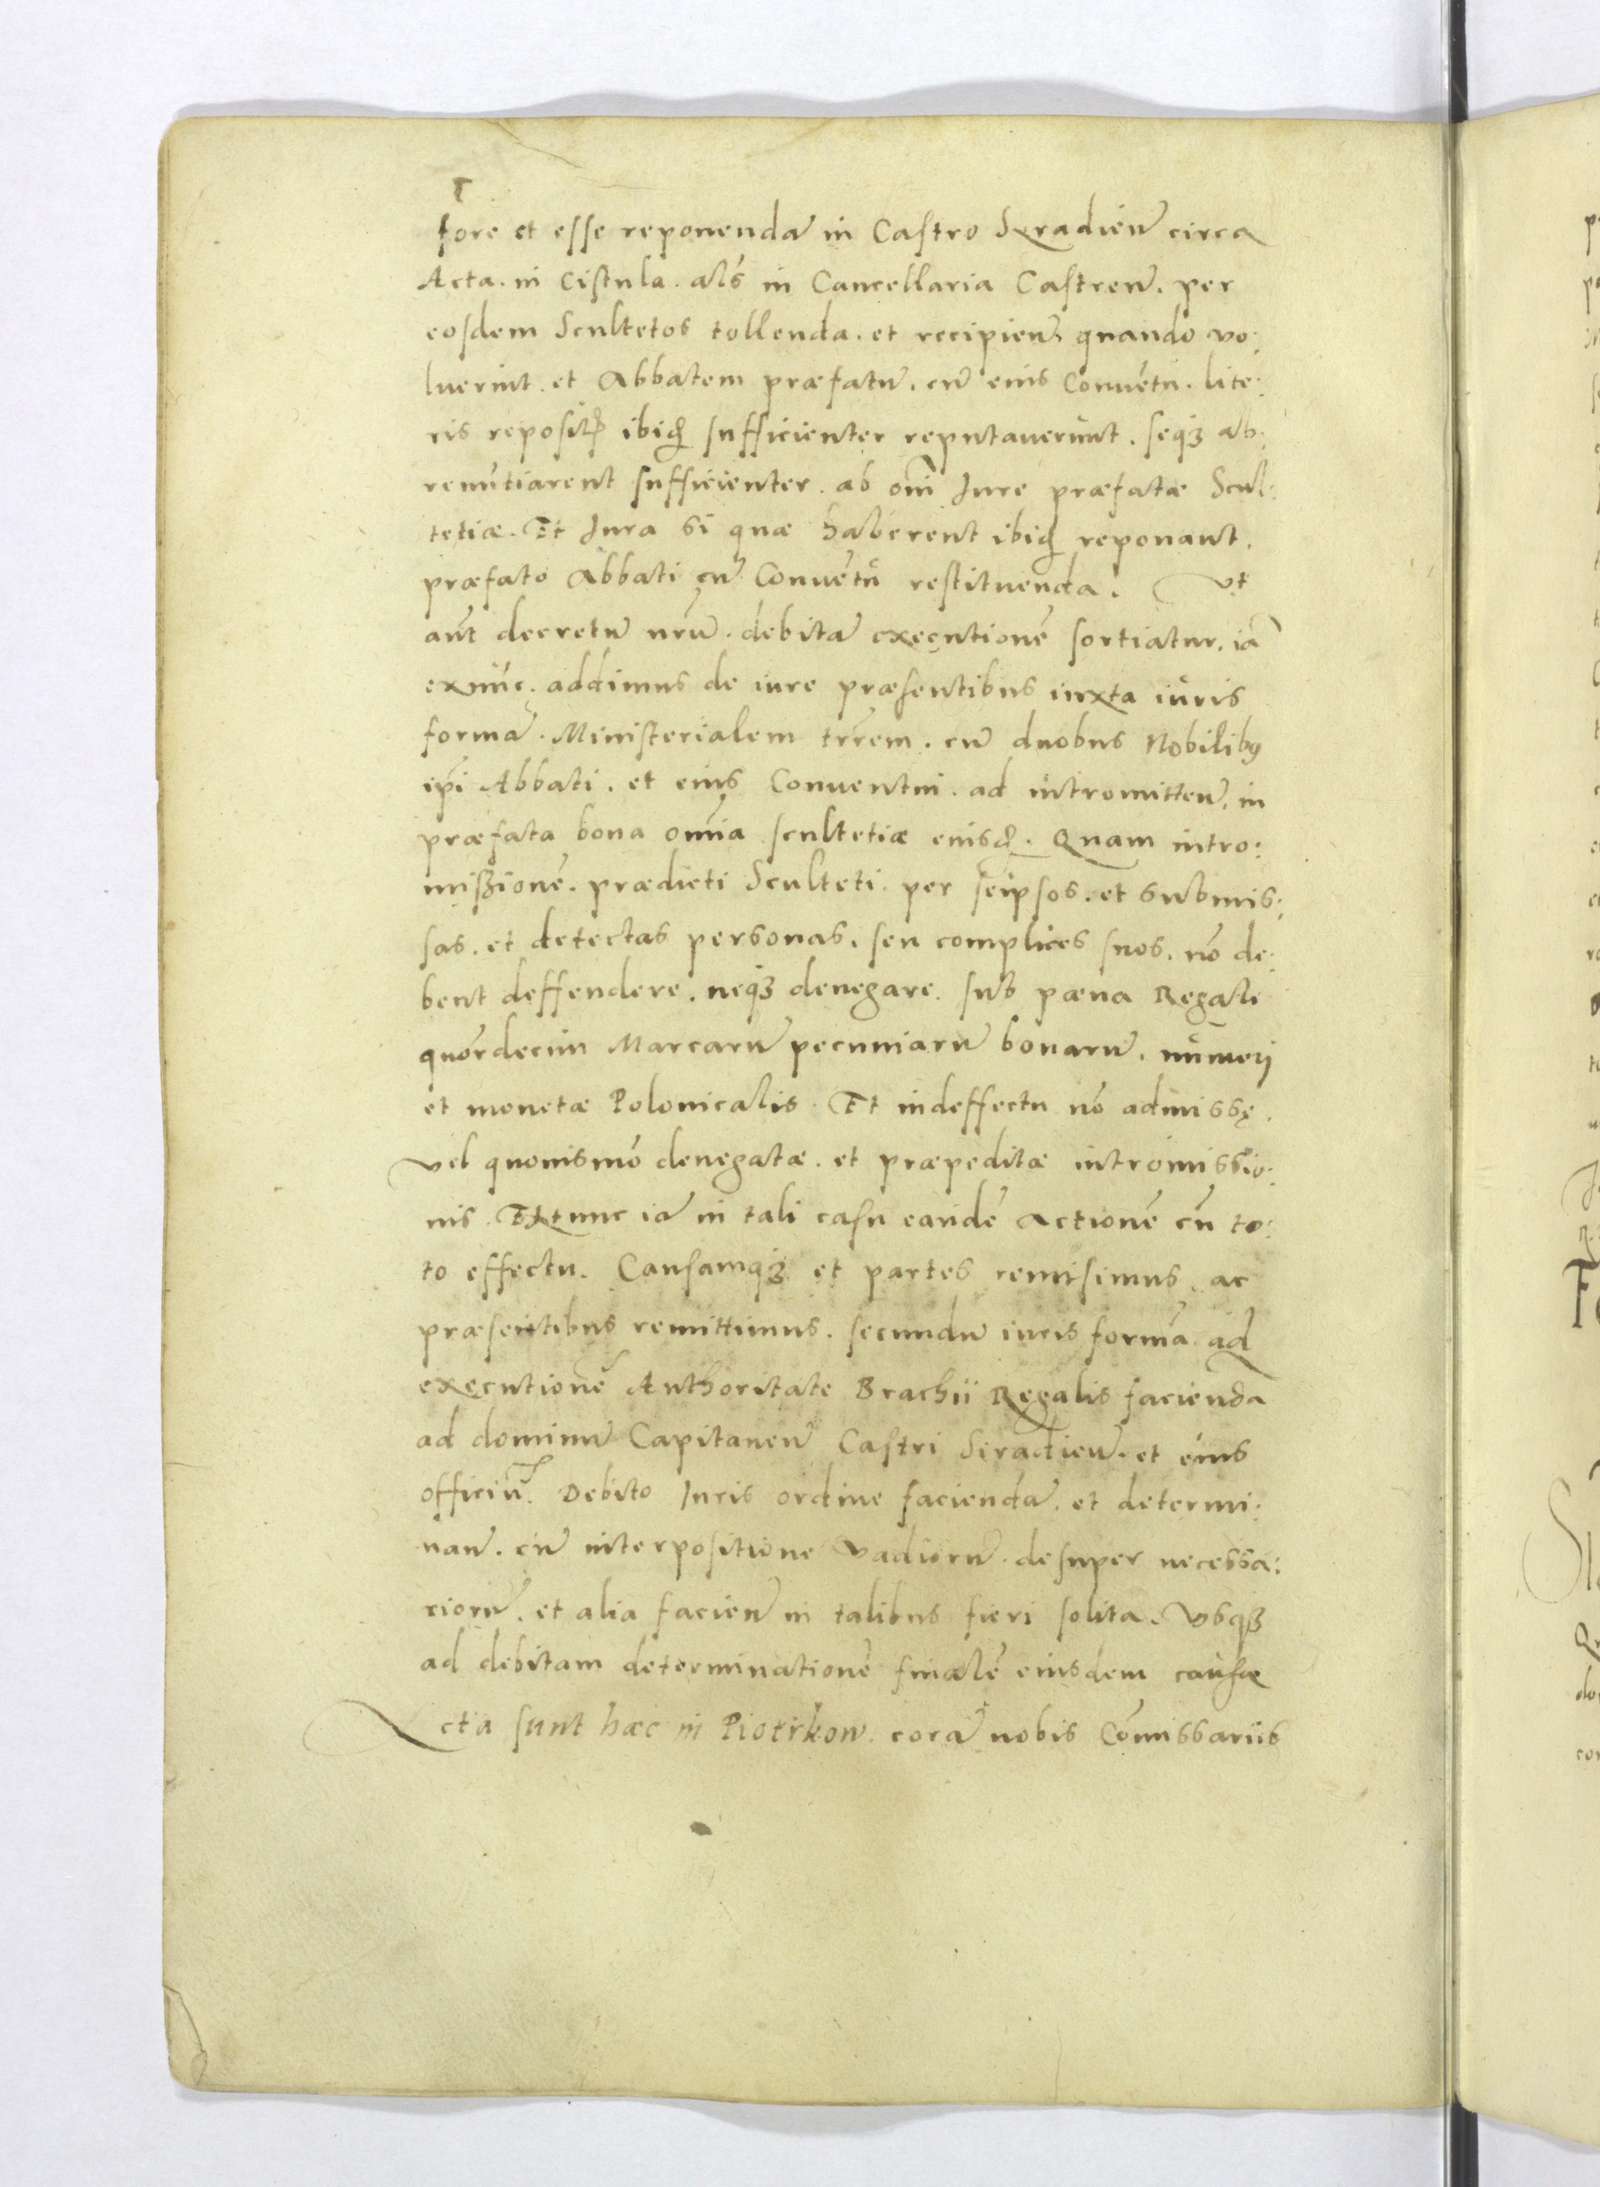 fore et esse reponendā in Castro Syradieñ circa
Acta. in Cistula. als̄ in Cancellaria Castreñ. per
eosdem Scultetos tollenda. et recipieñ. quando vo:
luerint. et Abbatem præfatū. cū eius Convētu. lite:
ris reposit ibid sufficienter reputaverunt. seqȝ ab:
renūtiarent sufficienter. ab om̄i Jure præfatæ Scul:
tetiæ. Et Jura si quæ haberent ibid reponant.
præfato Abbati cū Convētu restituenda. Vt
aūt decretū nr̄m. debitā executionē sortiatur. iā
exnūc. addimus de iure præsentibus iuxta iuris
formā. Ministerialem trr̄em. cū duobus Nobilibꝰ
ip̄i Abbati. et eius Conventui. ad intromitteñ. in
præfata bona omnia scultetiæ eiusd. Quam intro:
mißionē. prædicti Sculteti. per seipsos. et submis:
sas. et detectas personas. seu complices suos. nō de:
bent deffendere. neqȝ denegare. sub pæna Regali
quōrdecim Marcarū pecuniarū bonarū. numeri
et monetæ Polonicalis. Et indeffectu nō admissę.
vel quouismō denegatæ. et præpeditæ intromissio:
nis. Extunc iā in tali casu eandē actionē cū to:
to effectu. Causamqȝ et partes remisimus. ac
præsentibus remittimus. secundū iuris formā. ad
executionē Authoritate Brachii Regalis facienda
ad dominū Capitaneū Castri Siradieñ. et eius
officiū. Debito Juris ordine faciendā. et determi:
nañ. cū interpositione vadiorū. desuper necessa:
riorū. et alia facieñ in talibus fieri solita. Vsqȝ
ad debitam determinationē finalē eiusdem causæ
cta sunt hæc in Piotrkow. corā nobis Com̄issariis